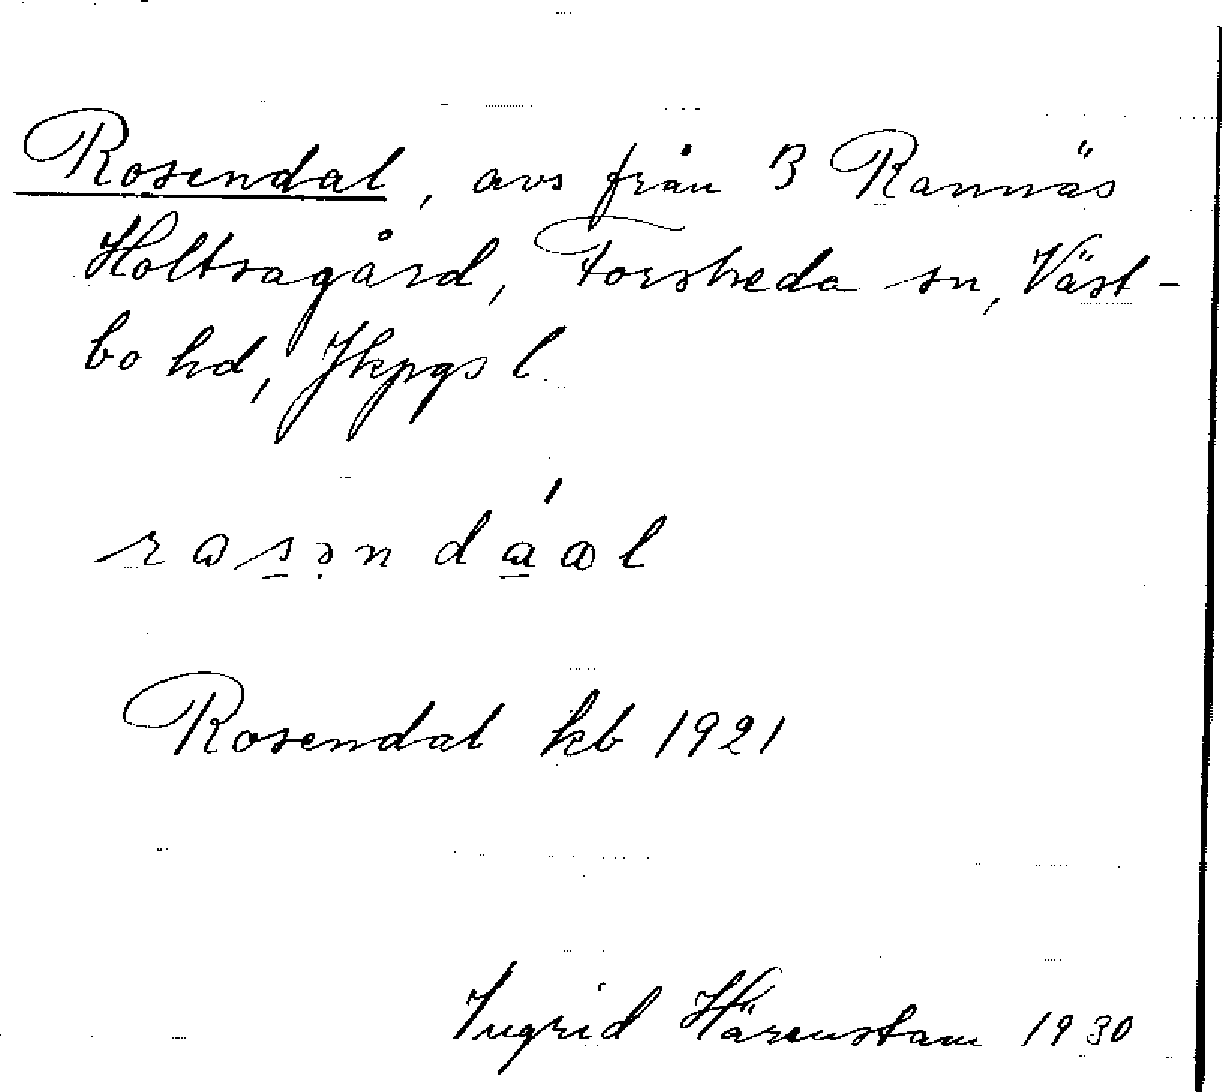 Rosendal, avs från B Rannäs
Holtsagård, Forsheda sn, Väst-
bo hd, Jkpgs l.
Rosendal kb 1921
Ingrid Härenstam 1930